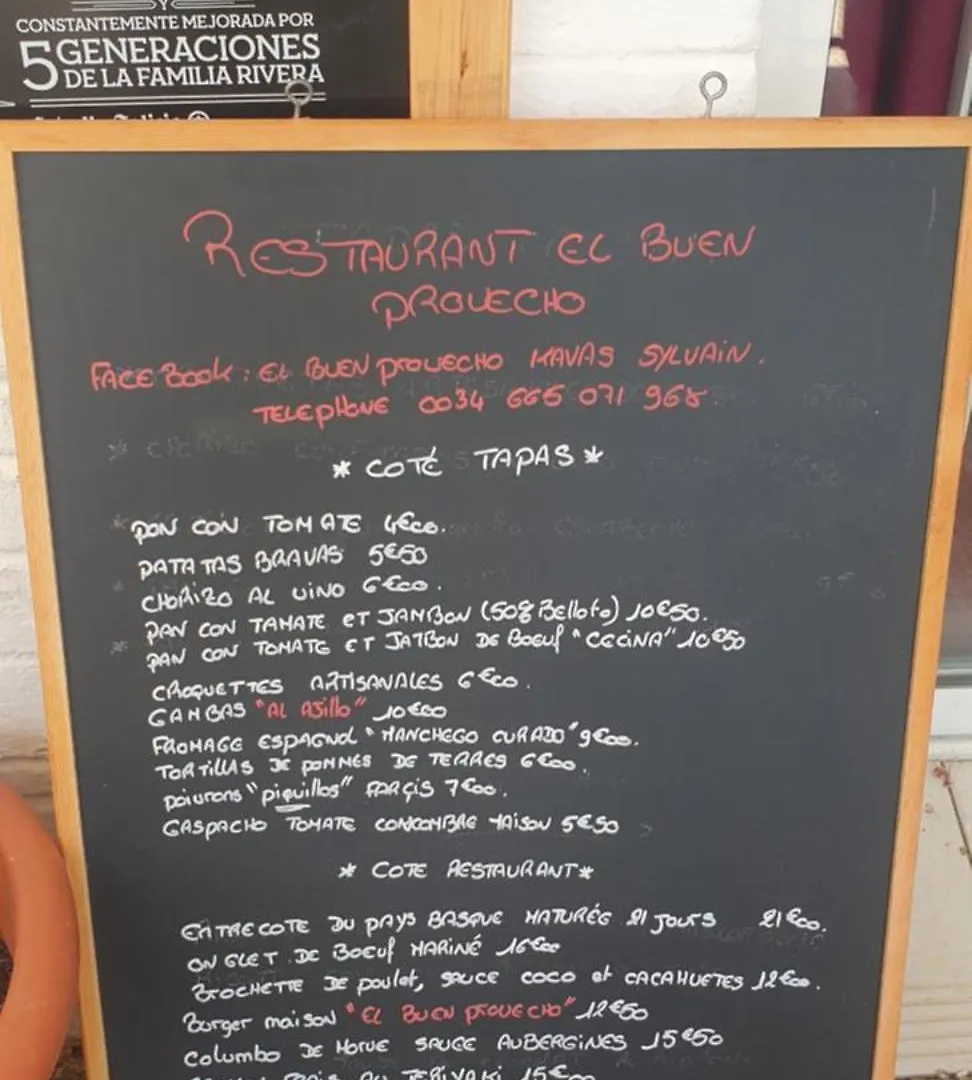 CONSTANTEMENTE MEJORADA POR
5 GENERACIONES
DE LA FAMILIA RIVERA
RESTAURANT EL BUEN
PROVECHO
FACEBOOK : EL BUEN PROVECHO KAVAS SYLVAIN.
TELEPHONE 0034 666 071 968
* COTÉ TAPAS *
PAN CON TOMATE 4€00.
PATATAS BRAVAS 5€50
CHORIZO AL VINO 6€00.
PAN CON TAMATE ET JAMBON (50% Bellota) 10€50.
PAN CON TOMATE ET JATBON DE BOEUF "CECINA" 10€50
CROQUETTES ARTISANALES 6€00.
GAMBAS "AL AJILLO" 10€00
FROMAGE ESPAGNOL "MANCHEGO CURADO" 9€00.
TORTILLAS DE POMMES DE TERRES 6€00.
poivrons "piquillos" FARCIS 7€00.
GASPACHO TOMATE CONCOMBRE MAISON 5€50
* COTE RESTAURANT *
ENTRECOTE DU PAYS BASQUE MATURÉE 21 JOURS 21€00.
ONGLET DE BOEUF MARINÉ 16€00
BROCHETTE DE poulet, SAUCE COCO et CACAHUETES 12€00.
Burger maison "EL BUEN PROVECHO" 12€50
Columbo DE MORUE SAUCE AUBERGINES 15€50
TERIYAKI 15€00